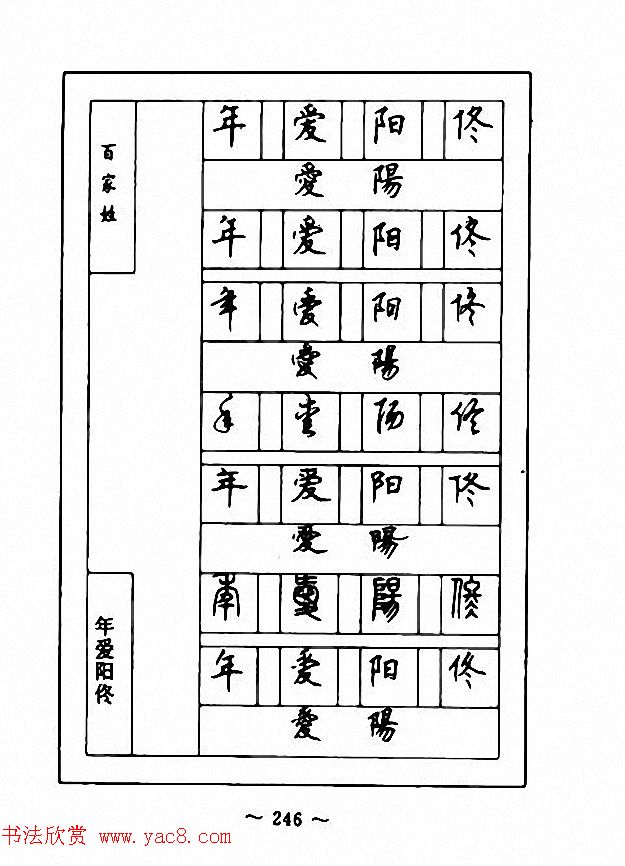 百家姓
年爱阳佟
年 爱 阳 佟
愛 陽
年 爱 阳 佟
年 爱 阳 佟
愛 陽
年 爱 阳 佟
年 爱 阳 佟
愛 陽
年 愛 陽 佟
年 爱 阳 佟
愛 陽
～ 246 ～
书法欣赏 www.yac8.com